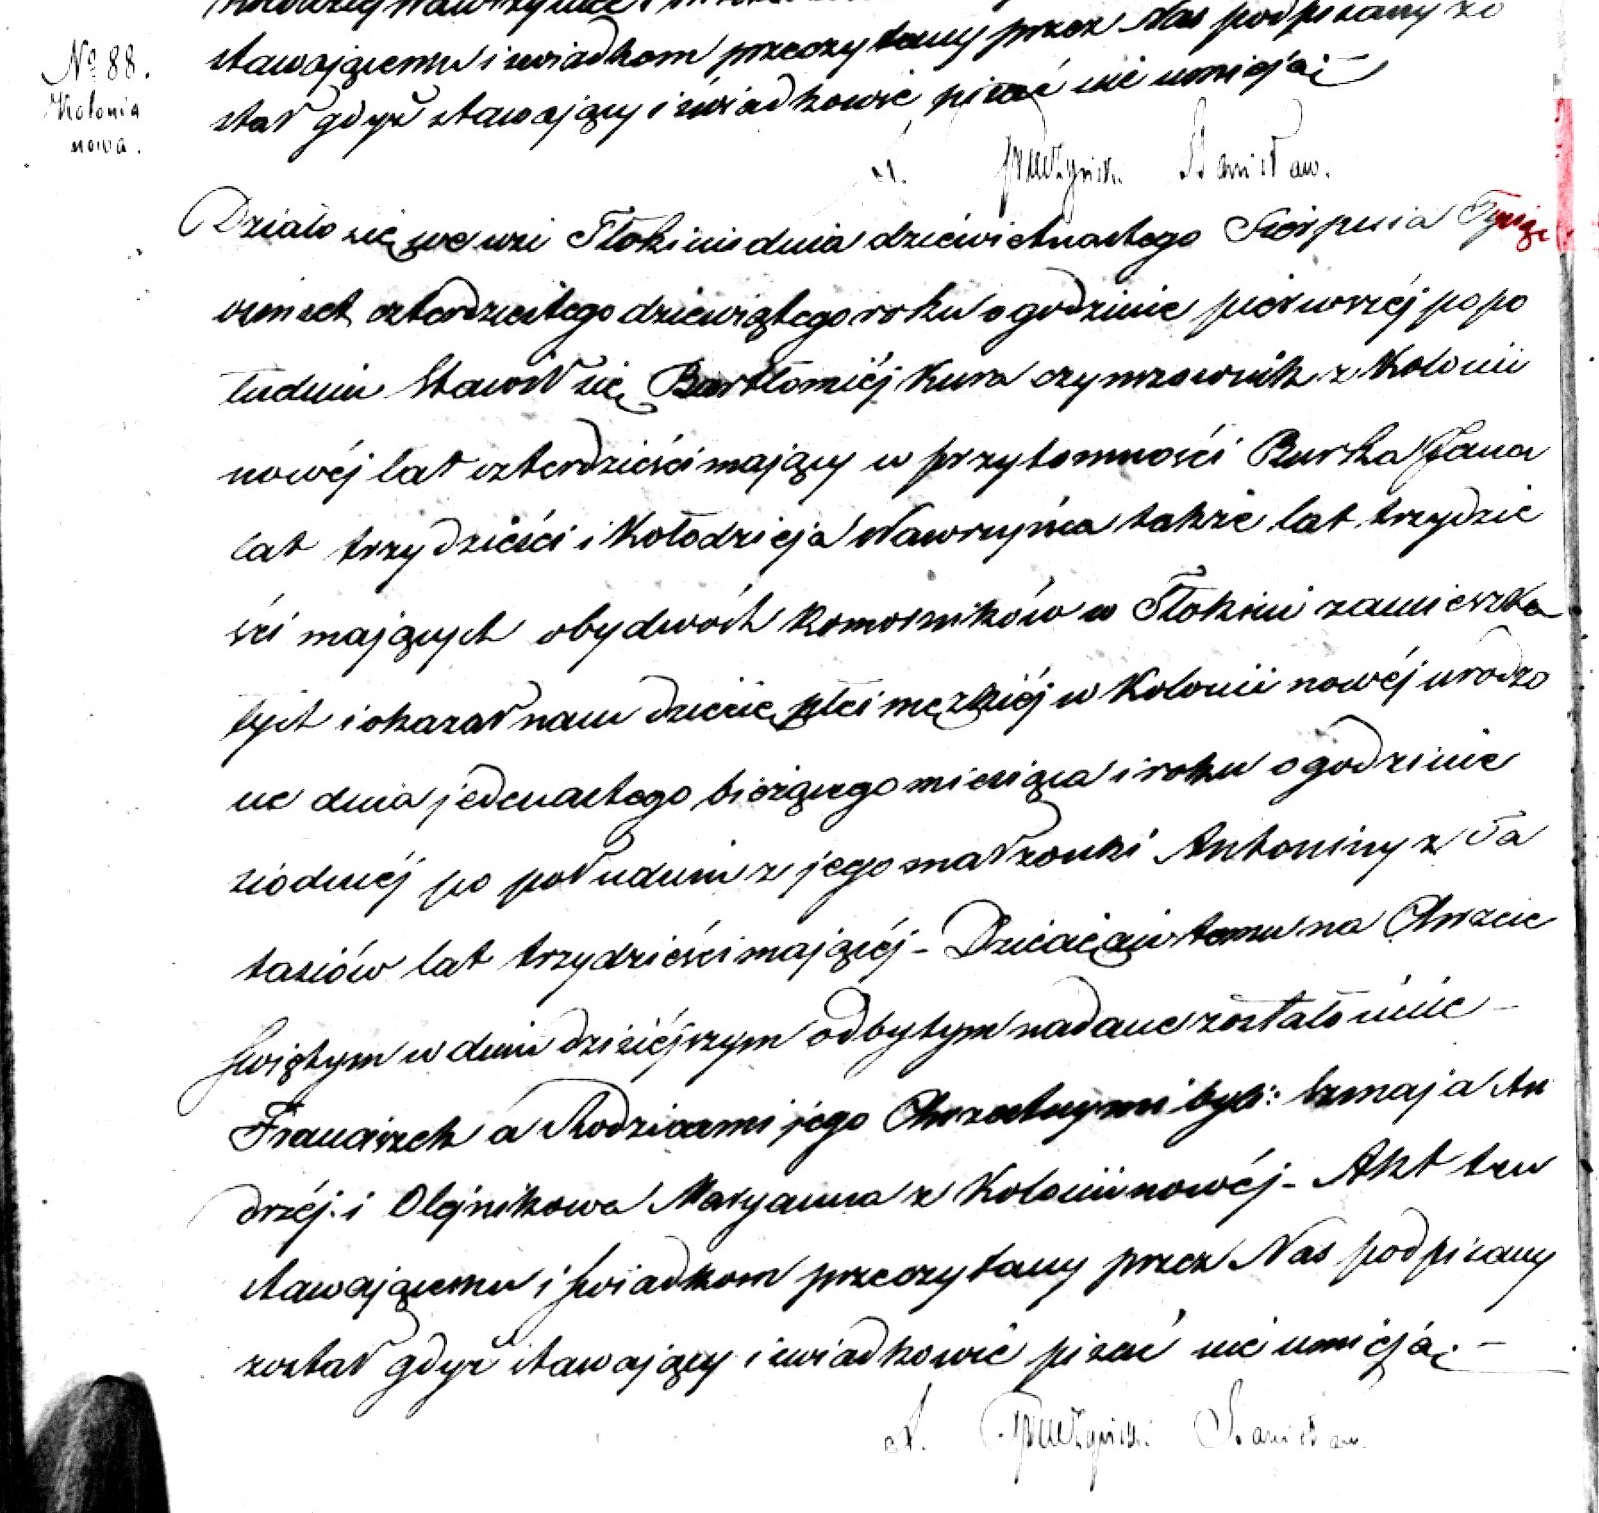 stawającemu i świadkom przeczytany przez Nas podpisany zo
stał gdyż stawający i świadkowie pisać nie umieją.
No 88.
Kolonia
nowa.
Stanisław.
Działo się we wsi Tłokini dnia dziewietnastego Sierpnia Tysiąc
osmset czterdziestego dziewiątego roku o godzinie pierwszéj popo
łudniu Stawił się Bartłomiéj Kura czynszownik z Kolonii
nowéj lat czterdzieści mający w przytomności Burska Jana
lat trzydzieści i Kołodzieja Wawrzyńca także lat trzydzie
ści mających obydwóch komorników w Tłokini zamieszka
łych i okazał nam dziecie płci męzkiéj w Kolonii nowéj urodzo
ne dnia jedenastego bieżącego miesiąca i roku o godzinie
siodméj po południu z jego małżonki Antoniny z Ta
tasiów lat trzydzieści mającéj - Dziecięciu temu na Chrzcie
Swiętym w dniu dzisiéjszym odbytym nadane zostało imie -
Franciszek a Rodzicami jego Chrzestnymi byli: Szmaja An
drzéj i Olejnikowa Maryanna z Kolonii nowéj - Akt ten
stawającemu i swiadkom przeczytany przez Nas podpisany
został gdyż stawający i swiadkowie pisać nie umieją. -
Stanisław.